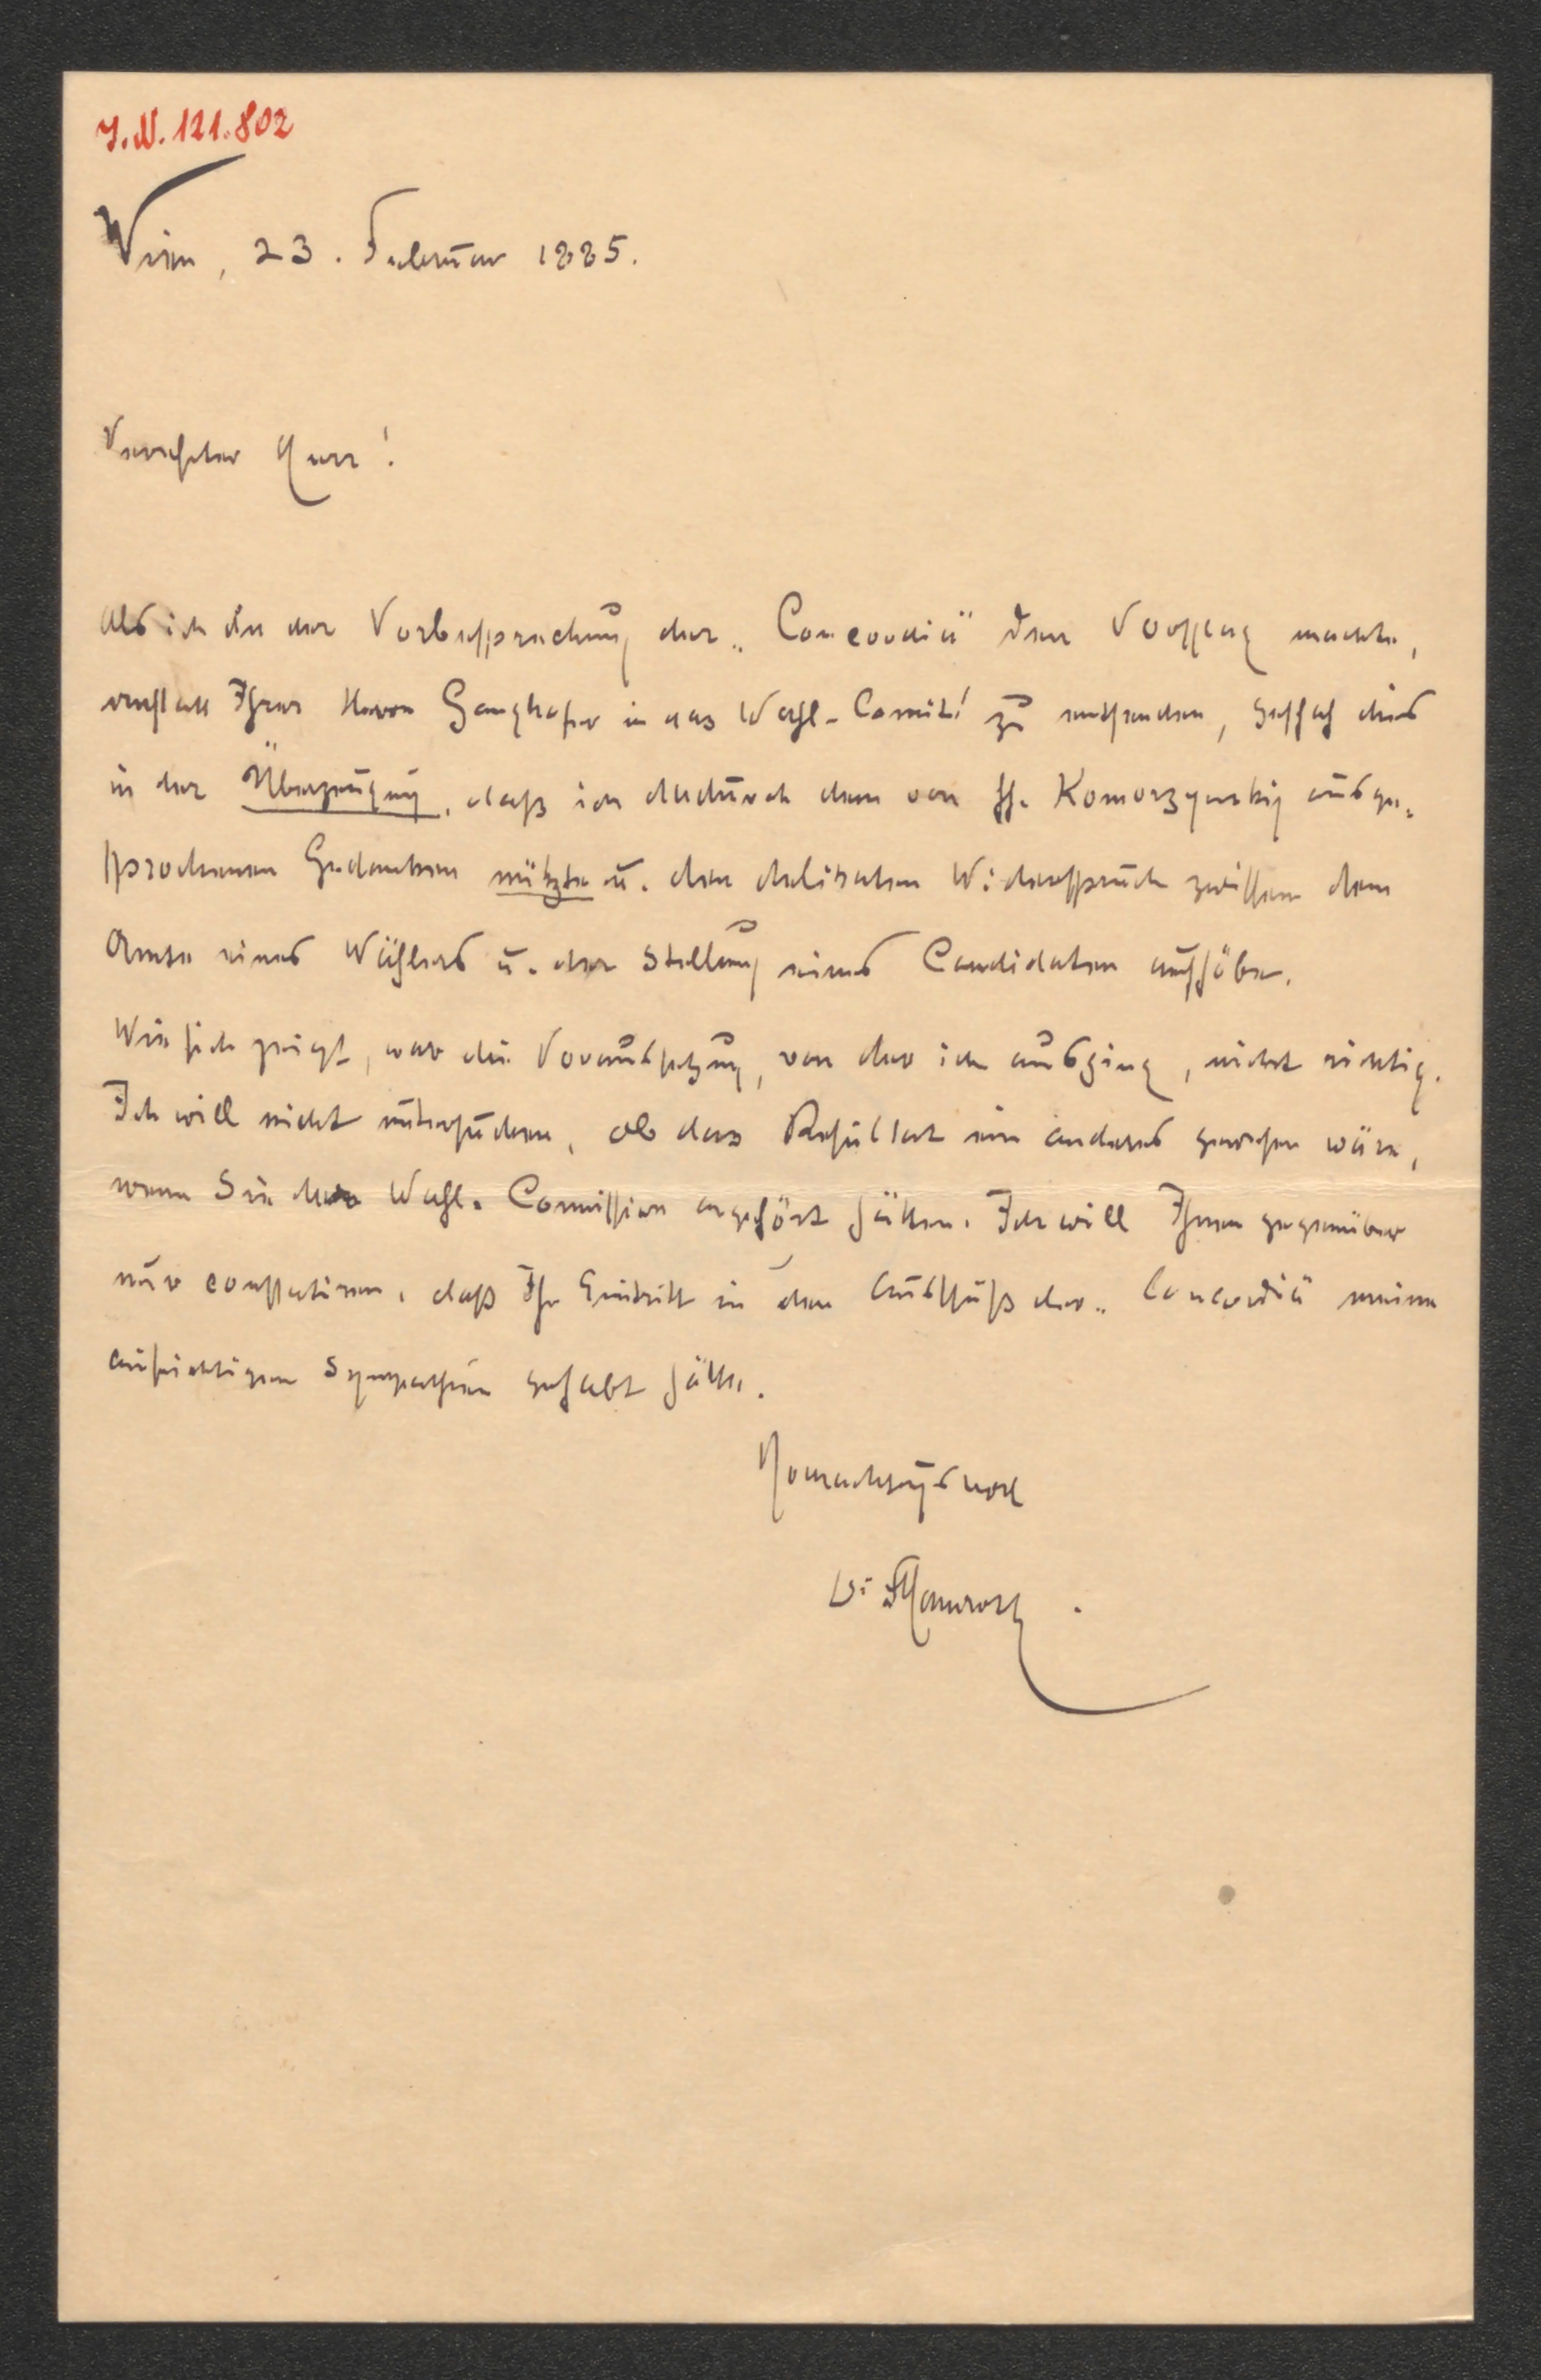 J.N. 121.802
Wien, 23. Februar 1885.
Verehrter Herr!
Als ich in der Vorbesprechung der „Concordia" den Vorschlag machte,
anstatt Ihrer Herrn Ganghofer in das Wahl-Comité zu entsenden, geschah dies
in der Überzeugung, daß ich dadurch dem von H. Komorzynsky ausge-
sprochenen Gedanken nützte u. den delikaten Widerspruch zwischen dem
Amte eines Wählers u. der Stellung eines Candidaten aufhöbe.
Wie sich zeigt, war die Voraussetzung, von der ich ausging, nicht richtig.
Ich will nicht untersuchen, ob das Resultat ein anderes gewesen wäre,
wenn Sie der Wahl-Comission angehört hätten. Ich will Ihnen gegenüber
nur constatiren, daß Ihr Eintritt in den Ausschuß der „Concordia" meine
aufrichtigen Sympathien gehabt hätte.
Hochachtungsvoll
Dr